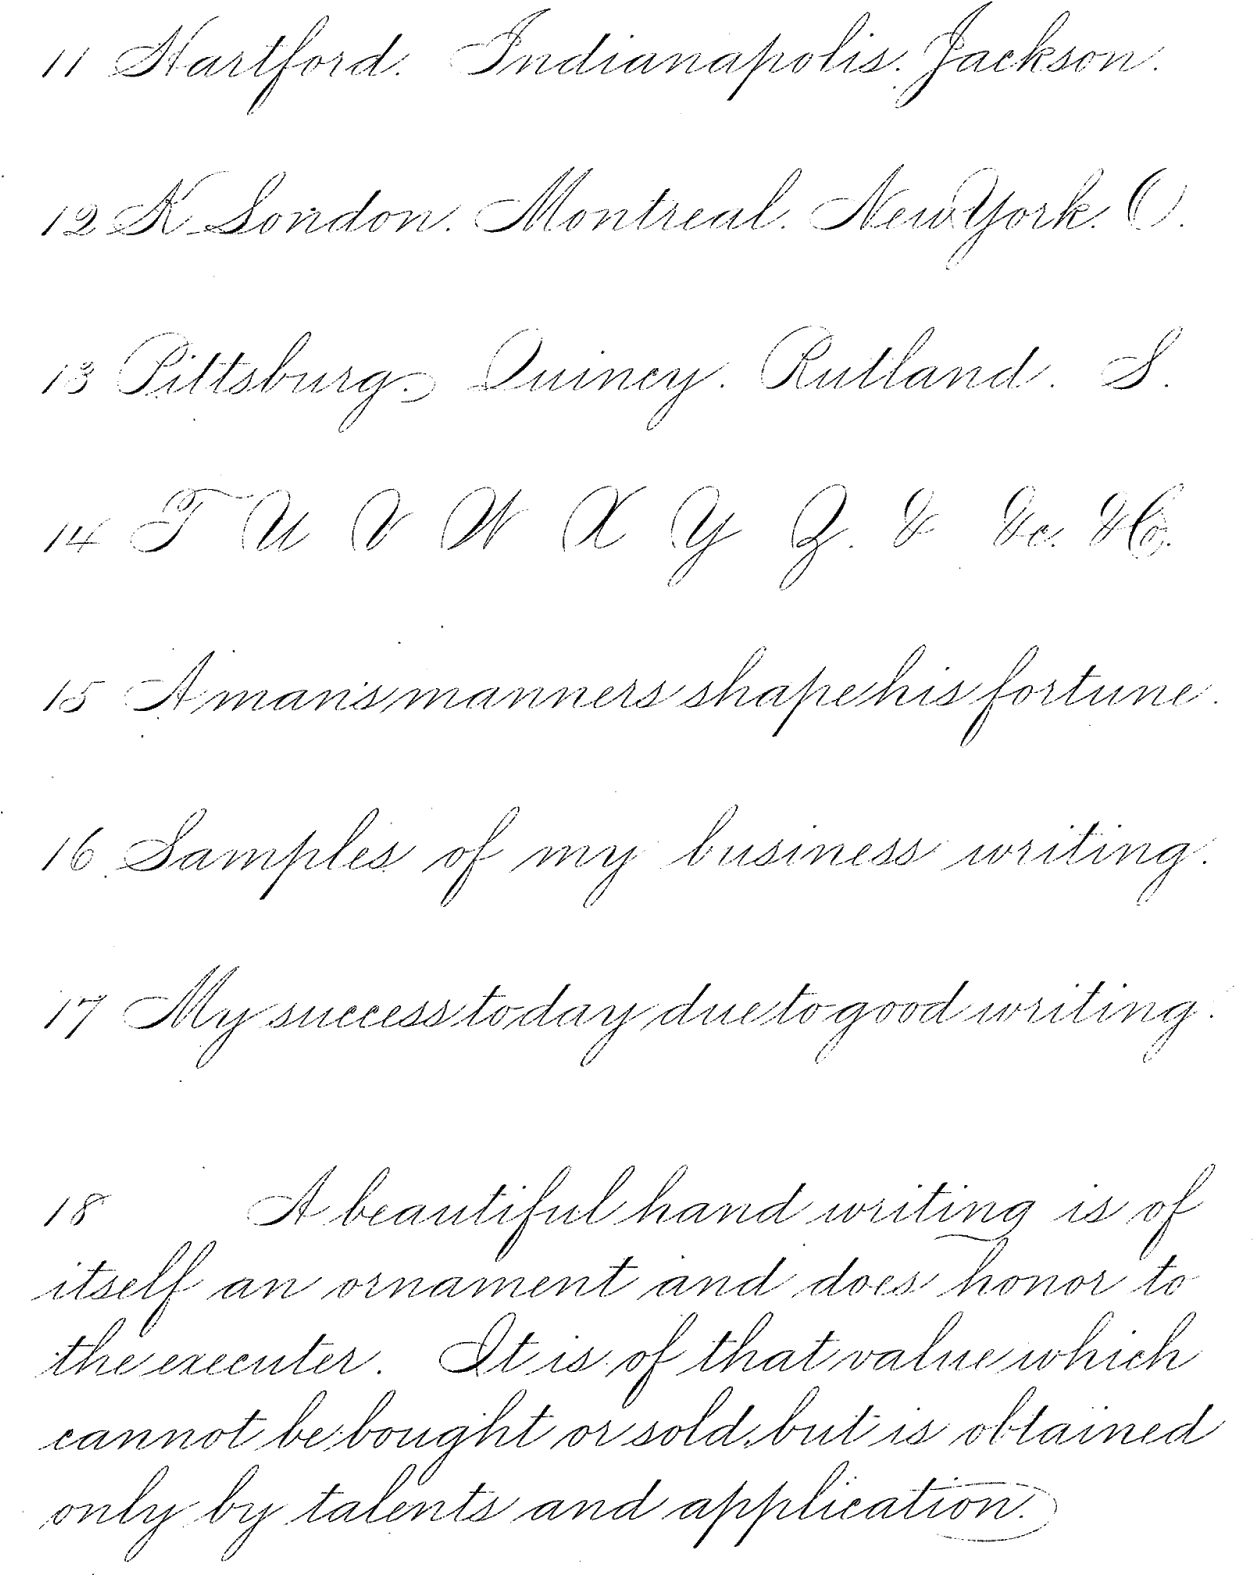 11 Hartford. Indianapolis. Jackson.
12 K London. Montreal. New York. O.
13 Pittsburg. Quincy. Rutland. S.
14 T U V W X Y Z. & &c. &Co.
15 A man's manners shape his fortune.
16 Samples of my business writing.
17 My success to day due to good writing.
18 A beautiful hand writing is of
itself an ornament and does honor to
the executer. It is of that value which
cannot be bought or sold, but is obtained
only by talents and application.